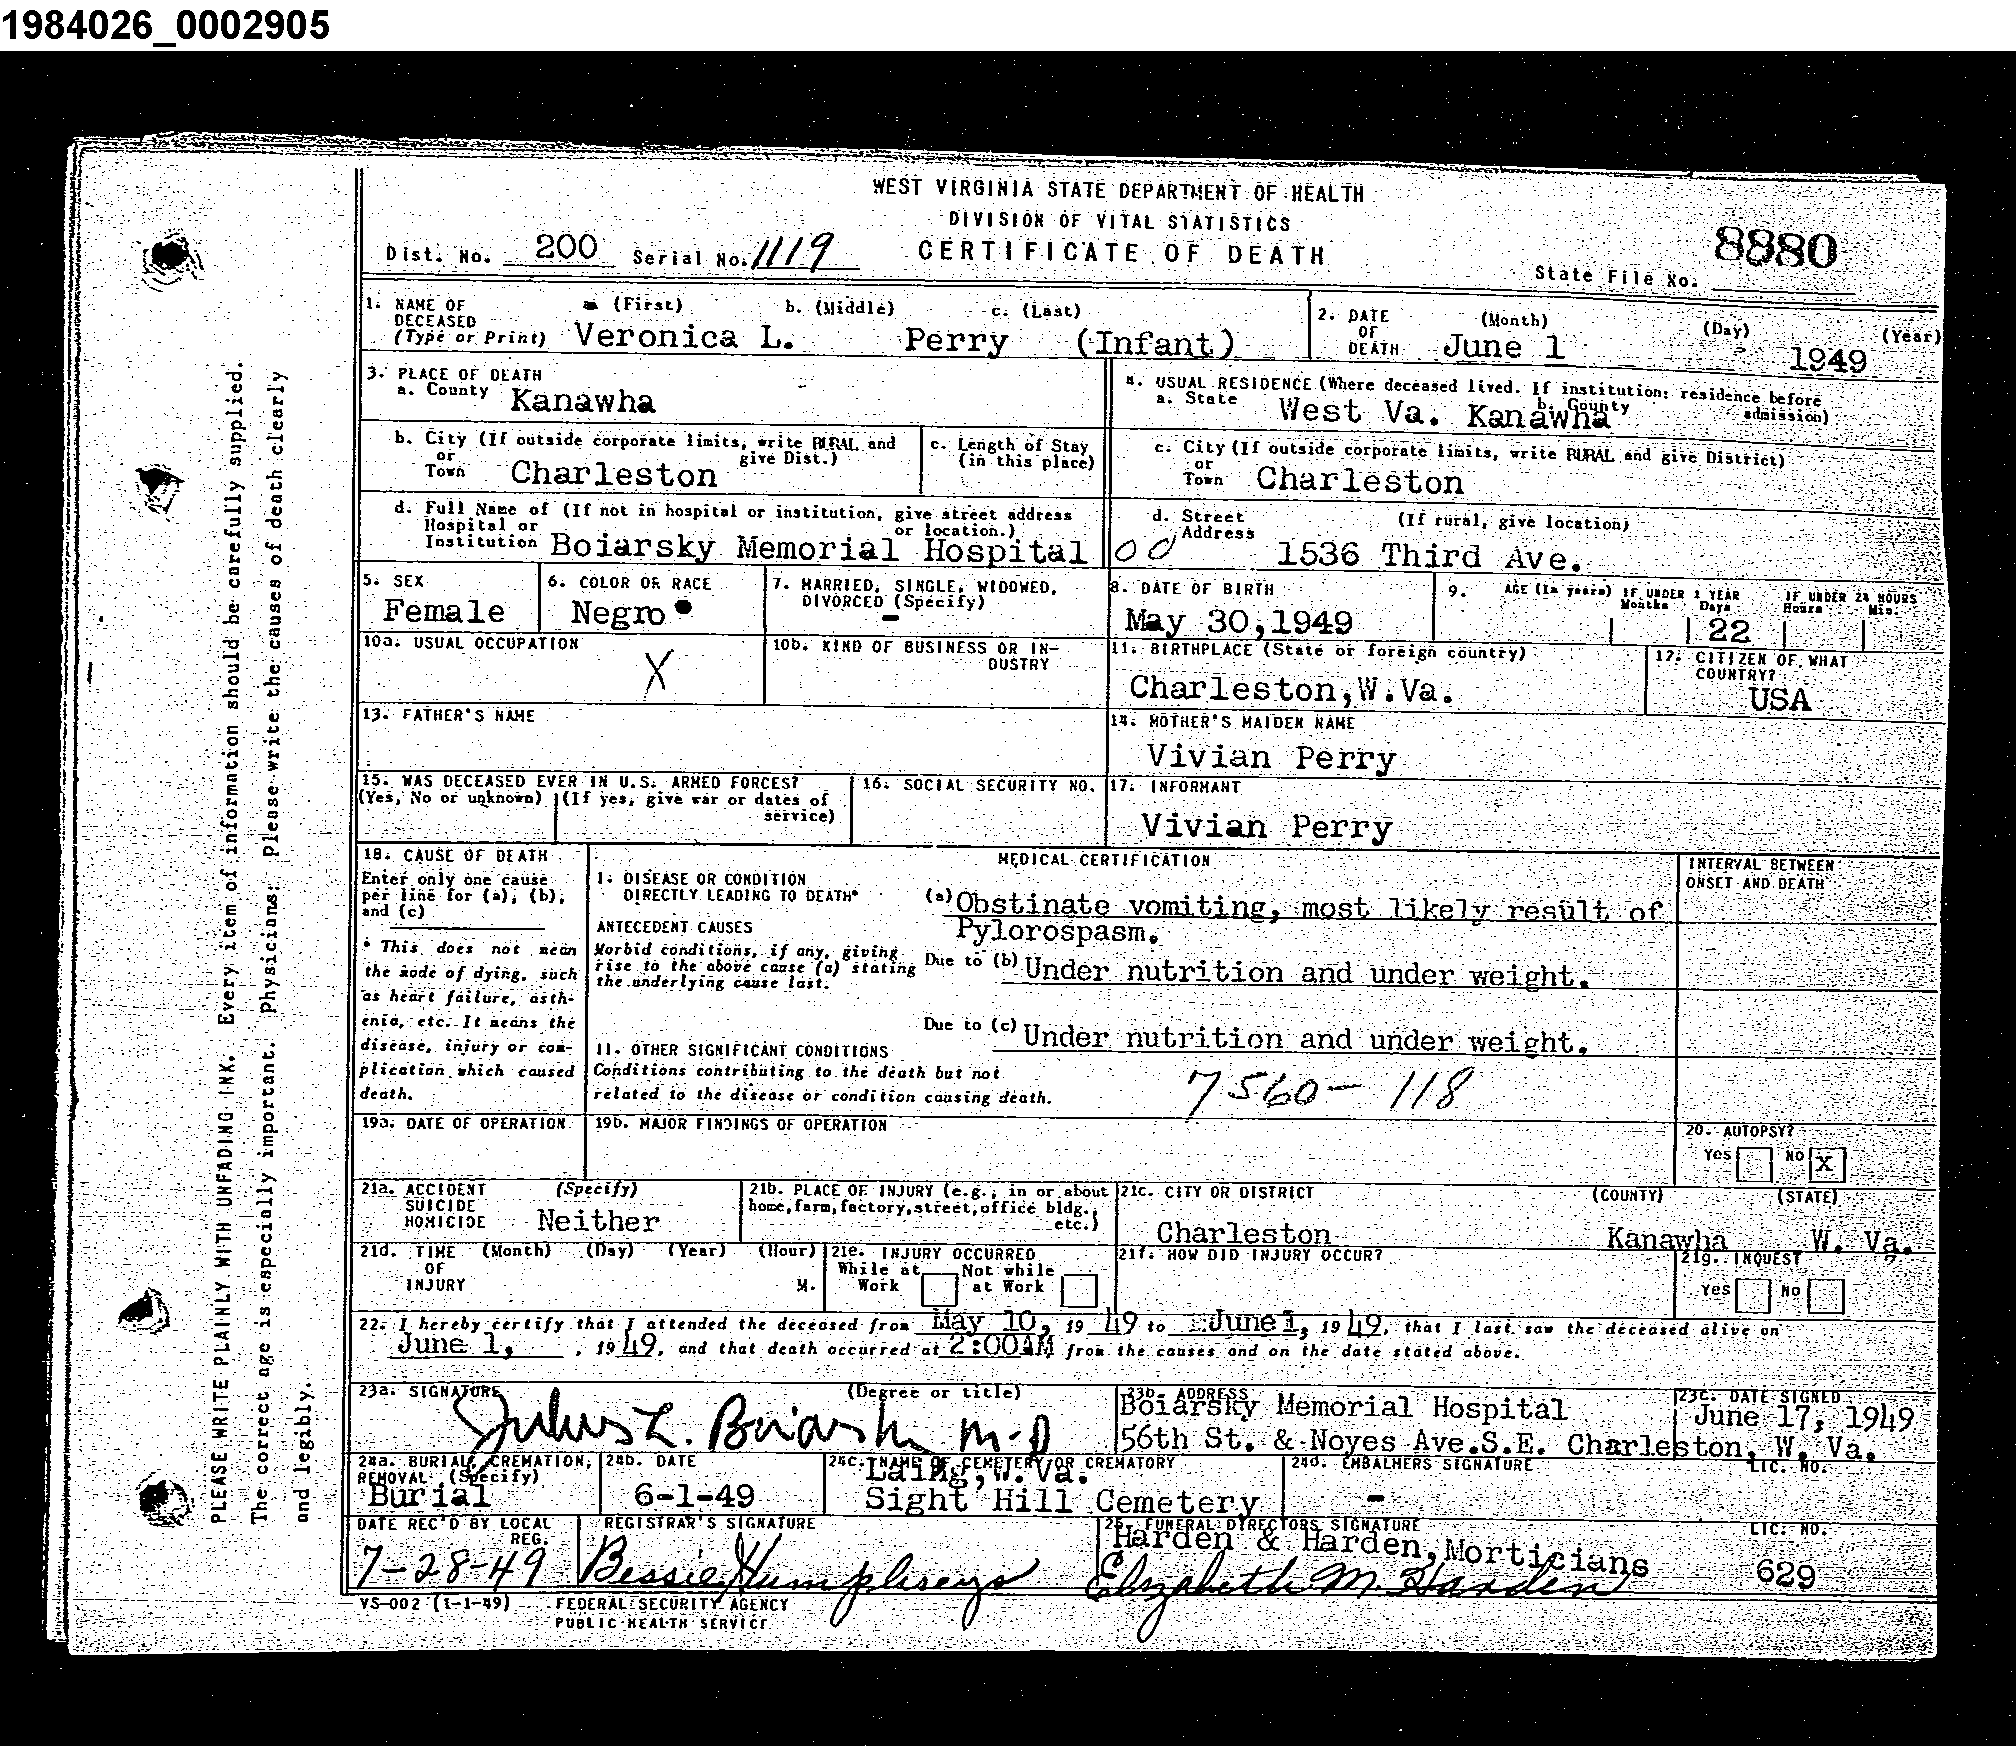 1984026_0002905
WEST VIRGINIA STATE DEPARTMENT OF HEALTH
DIVISION OF VITAL STATISTICS
CERTIFICATE OF DEATH
Dist. No. 200 Serial No. 1119
State File No. 8880
1. NAME OF DECEASED (Type or Print) a (First) b. (Middle) c. (Last)
Veronica L. Perry (Infant)
2. DATE OF DEATH (Month) (Day) (Year)
June 1 1949
3. PLACE OF DEATH
a. County Kanawha
4. USUAL RESIDENCE (Where deceased lived. If institution: residence before admission)
a. State West Va. b. County Kanawha
b. City (If outside corporate limits, write RURAL and give Dist.)
or Town Charleston
c. Length of Stay (in this place)
c. City (If outside corporate limits, write RURAL and give District)
or Town Charleston
d. Full Name of (If not in hospital or institution, give street address or location.)
Hospital or Institution Boiarsky Memorial Hospital
d. Street Address (If rural, give location)
00 1536 Third Ave.
5. SEX
Female
6. COLOR OR RACE
Negro
7. MARRIED, SINGLE, WIDOWED, DIVORCED (Specify)
-
8. DATE OF BIRTH
May 30,1949
9. AGE (In years) IF UNDER 1 YEAR Months Days IF UNDER 24 HOURS Hours Min.
22
10a. USUAL OCCUPATION
X
10b. KIND OF BUSINESS OR INDUSTRY
11. BIRTHPLACE (State or foreign country)
Charleston,W.Va.
12. CITIZEN OF WHAT COUNTRY?
USA
13. FATHER'S NAME
14. MOTHER'S MAIDEN NAME
Vivian Perry
15. WAS DECEASED EVER IN U.S. ARMED FORCES?
(Yes, No or unknown) (If yes, give war or dates of service)
16. SOCIAL SECURITY NO.
17. INFORMANT
Vivian Perry
18. CAUSE OF DEATH
Enter only one cause
per line for (a), (b),
and (c)
* This does not mean
the mode of dying, such
as heart failure, asth-
enia, etc. It means the
disease, injury or com-
plication which caused
death.
MEDICAL CERTIFICATION
I. DISEASE OR CONDITION
DIRECTLY LEADING TO DEATH*
(a) Obstinate vomiting, most likely result of
Pylorospasm.
ANTECEDENT CAUSES
Morbid conditions, if any, giving
rise to the above cause (a) stating
the underlying cause last.
Due to (b) Under nutrition and under weight.
Due to (c) Under nutrition and under weight.
II. OTHER SIGNIFICANT CONDITIONS
Conditions contributing to the death but not
related to the disease or condition causing death.
7560- 118
INTERVAL BETWEEN
ONSET AND DEATH
19a. DATE OF OPERATION
19b. MAJOR FINDINGS OF OPERATION
20. AUTOPSY?
Yes No X
21a. ACCIDENT (Specify)
SUICIDE
HOMICIDE Neither
21b. PLACE OF INJURY (e.g., in or about
home, farm, factory, street, office bldg.,
etc.)
21c. CITY OR DISTRICT (COUNTY) (STATE)
Charleston Kanawha W. Va.
21d. TIME (Month) (Day) (Year) (Hour)
OF
INJURY M.
21e. INJURY OCCURRED
While at Work Not while at Work
21f. HOW DID INJURY OCCUR?
21g. INQUEST
Yes No
22. I hereby certify that I attended the deceased from May 10, 19 49 to June 1, 19 49, that I last saw the deceased alive on
June 1, , 19 49, and that death occurred at 2:00AM from the causes and on the date stated above.
23a. SIGNATURE (Degree or title)
Julius L. Boiarsky M.D
23b. ADDRESS
Boiarsky Memorial Hospital
56th St. & Noyes Ave.S.E. Charleston, W. Va.
23c. DATE SIGNED
June 17, 1949
24a. BURIAL, CREMATION,
REMOVAL (Specify)
Burial
24b. DATE
6-1-49
24c. NAME OF CEMETERY OR CREMATORY
Laing,W.Va.
Sight Hill Cemetery
24d. EMBALMERS SIGNATURE LIC. NO.
-
DATE REC'D BY LOCAL REG.
7-28-49
REGISTRAR'S SIGNATURE
Bessie Humphreys
25. FUNERAL DIRECTORS SIGNATURE LIC. NO.
Harden & Harden,Morticians
Elizabeth M. Harden 629
VS-002 (1-1-49) FEDERAL SECURITY AGENCY
PUBLIC HEALTH SERVICE
PLEASE WRITE PLAINLY WITH UNFADING INK. Every item of information should be carefully supplied.
The correct age is especially important. Physicians: please write the causes of death clearly
and legibly.